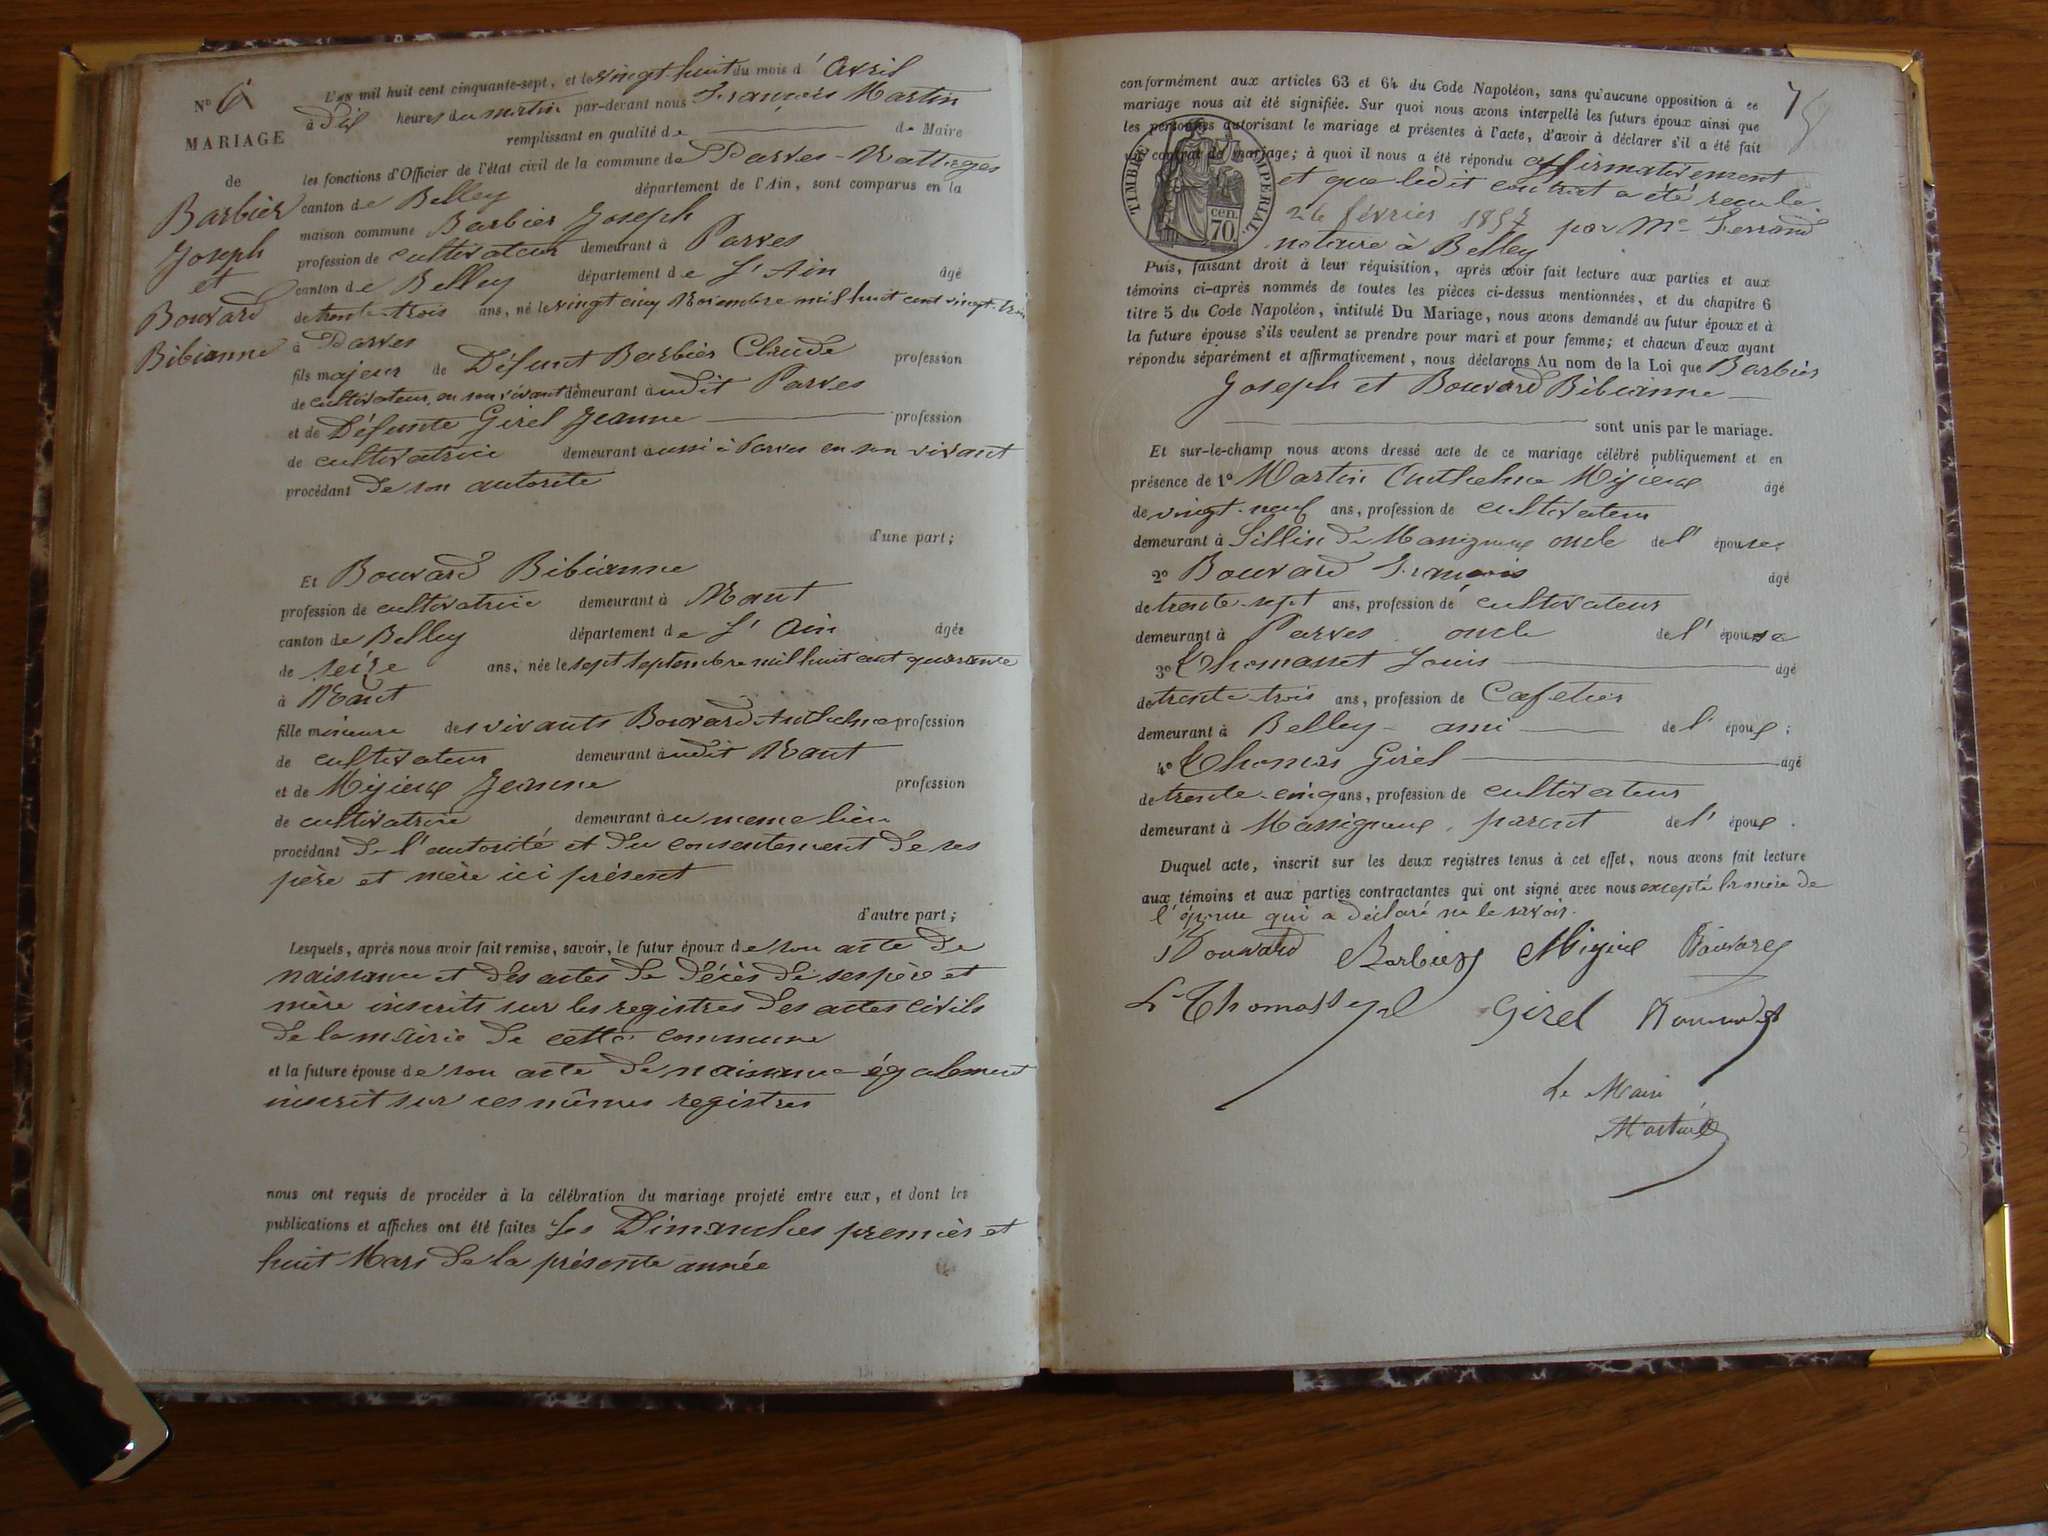 N° 6
MARIAGE
de
Barbier
Joseph
et
Bouvard
Bibianne
L'an mil huit cent cinquante-sept, et le vingt-huit du mois d' Avril
à dix heures du matin par-devant nous François Martin
remplissant en qualité de de Maire
les fonctions d'Officier de l'état civil de la commune de Parves-Nattages
canton de Belley département de l'Ain, sont comparus en la
maison commune Barbier Joseph
profession de cultivateur demeurant à Parves
canton de Belley département de L'Ain âgé
de trente-trois ans, né le vingt cinq Novembre mil huit cent vingt-trois
à Parves
fils majeur de Défunt Barbier Claude profession
de cultivateur en son vivant demeurant audit Parves
et de Défunte Girel Jeanne profession
de cultivatrice demeurant aussi à Parves en son vivant
procédant de son autorité
d'une part;
Et Bouvard Bibianne
profession de cultivatrice demeurant à Nant
canton de Belley département de L'Ain âgée
de seize ans, née le sept septembre mil huit cent quarante
à Nant
fille mineure des vivants Bouvard Anthelme profession
de cultivateur demeurant audit Nant
et de Mijieux Jeanne profession
de cultivatrice demeurant au meme lieu
procédant de l'autorité et du consentement de ses
père et mère ici présent
d'autre part;
Lesquels, après nous avoir fait remise, savoir, le futur époux de son acte de
naissance et des actes de décès de ses père et
mère inscrits sur les registres des actes civils
de la mairie de cette commune
et la future épouse de son acte de naissance également
inscrit sur ces mêmes registres
nous ont requis de procéder à la célébration du mariage projeté entre eux, et dont les
publications et affiches ont été faites les Dimanches premier et
huit Mars de la présente année
7
conformément aux articles 63 et 64 du Code Napoléon, sans qu'aucune opposition à ce
mariage nous ait été signifiée. Sur quoi nous avons interpellé les futurs époux ainsi que
les personnes autorisant le mariage et présentes à l'acte, d'avoir à déclarer s'il a été fait
un contrat de mariage; à quoi il nous a été répondu affirmativement
et que ledit contrat a été reçu le
26 février 1857 par Me Ferrand
notaire à Belley
TIMBRE IMPERIAL
cen.
70.
Puis, faisant droit à leur réquisition, après avoir fait lecture aux parties et aux
témoins ci-après nommés de toutes les pièces ci-dessus mentionnées, et du chapitre 6
titre 5 du Code Napoléon, intitulé Du Mariage, nous avons demandé au futur époux et à
la future épouse s'ils veulent se prendre pour mari et pour femme; et chacun d'eux ayant
répondu séparément et affirmativement, nous déclarons Au nom de la Loi que Barbier
Joseph et Bouvard Bibianne
sont unis par le mariage.
Et sur-le-champ nous avons dressé acte de ce mariage célébré publiquement et en
présence de 1° Martin Anthelme Mijieux âgé
de vingt-neuf ans, profession de cultivateur
demeurant à Sillin de Massignieux oncle de l'épouse
2° Bouvard François âgé
de trente-sept ans, profession de cultivateur
demeurant à Parves oncle de l'épouse
3° Thomasset Louis âgé
de trente-trois ans, profession de Cafetier
demeurant à Belley ami de l'époux;
4° Thomas Girel âgé
de trente-cinq ans, profession de cultivateur
demeurant à Massignieux, parent de l'époux.
Duquel acte, inscrit sur les deux registres tenus à cet effet, nous avons fait lecture
aux témoins et aux parties contractantes qui ont signé avec nous excepté la mère de
l'épouse qui a déclaré ne le savoir.
Bouvard Barbier Mijieux Bouvard
Ls Thomasset Girel Bouvard
Le Maire
Martin